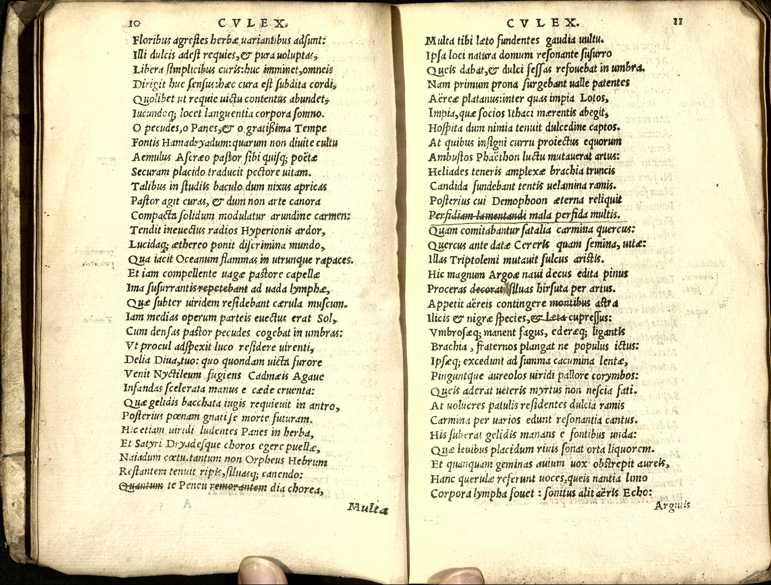 10 CVLEX.
Floribus agrestes herbæ uariantibus adsunt:
Illi dulcis adest requies, & pura uoluptas,
Libera simplicibus curis: huc imminet, omneis
Dirigit huc sensus: hæc cura est subdita cordi,
Quolibet ut requie uictu contentus abundet,
Iucundoq; locet languentia corpora somno.
O pecudes, o Panes, & o gratissima Tempe
Fontis Hamadryadum: quarum non diuite cultu
Aemulus Ascræo pastor sibi quisq; poëtæ
Securam placido traducit pectore uitam.
Talibus in studiis baculo dum nixus apricas
Pastor agit curas, & dum non arte canora
Compacta solidum modulatur arundine carmen:
Tendit ineuectus radios Hyperionis ardor,
Lucidaq; æthereo ponit discrimina mundo,
Qua iacit Oceanum flammas in utrunque rapaces.
Et iam compellente uagæ pastore capellæ
Ima susurrantis repetebant ad uada lymphæ,
Quæ subter uiridem residebant cærula muscum.
Iam medias operum parteis euectus erat Sol,
Cum densas pastor pecudes cogebat in umbras:
Vt procul adspexit luco residere uirenti,
Delia Diua, tuo: quo quondam uicta furore
Venit Nyctileum fugiens Cadmæis Agaue
Infandas scelerata manus e cæde cruenta:
Quæ gelidis bacchata iugis requieuit in antro,
Posterius pœnam gnati se morte futuram.
Hic etiam uiridi ludentes Panes in herba,
Et Satyri Dryadesque choros egere puellæ,
Naiadum cœtu. tantum non Orpheus Hebrum
Restantem tenuit ripis, siluasq; canendo:
Quantum te Peneu remorantem dia chorea,
Multa
CVLEX. 11
Multa tibi læto fundentes gaudia uultu.
Ipsa loci natura domum resonante susurro
Queis dabat, & dulci fessas refouebat in umbra.
Nam primum prona surgebant ualle patentes
Aëreæ platanus: inter quas impia Lotos,
Impia, quæ socios Ithaci mærentis abegit,
Hospita dum nimia tenuit dulcedine captos.
At quibus insigni curru proiectus equorum
Ambustos Phaëthon luctu mutauerat artus:
Heliades teneris amplexæ brachia truncis
Candida fundebant tentis uelamina ramis.
Posterius cui Demophoon æterna reliquit
Perfidiam lamentandi mala perfida multis.
Quam comitabantur fatalia carmina quercus:
Quercus ante datæ Cereris quam semina, uitæ:
Illas Triptolemi mutauit sulcus aristis.
Hic magnum Argoæ naui decus edita pinus
Proceras decorat siluas hirsuta per artus.
Appetit aëreis contingere montibus astra
Ilicis & nigræ species, & læta cupressus:
Vmbrosæq; manent fagus, ederæq; ligantis
Brachia, fraternos plangat ne populus ictus:
Ipsæq; excedunt ad summa cacumina lentæ,
Pinguntque aureolos uiridi pallore corymbos:
Queis aderat ueteris myrtus non nescia fati.
At uolucres patulis residentes dulcia ramis
Carmina per uarios edunt resonantia cantus.
His suberat gelidis manans e fontibus unda:
Quæ leuibus placidum riuis sonat orta liquorem.
Et quanquam geminas auium uox obstrepit aureis,
Hanc querulæ referunt uoces, queis nantia limo
Corpora lympha fouet: sonitus alit aëris Echo:
Arguiis